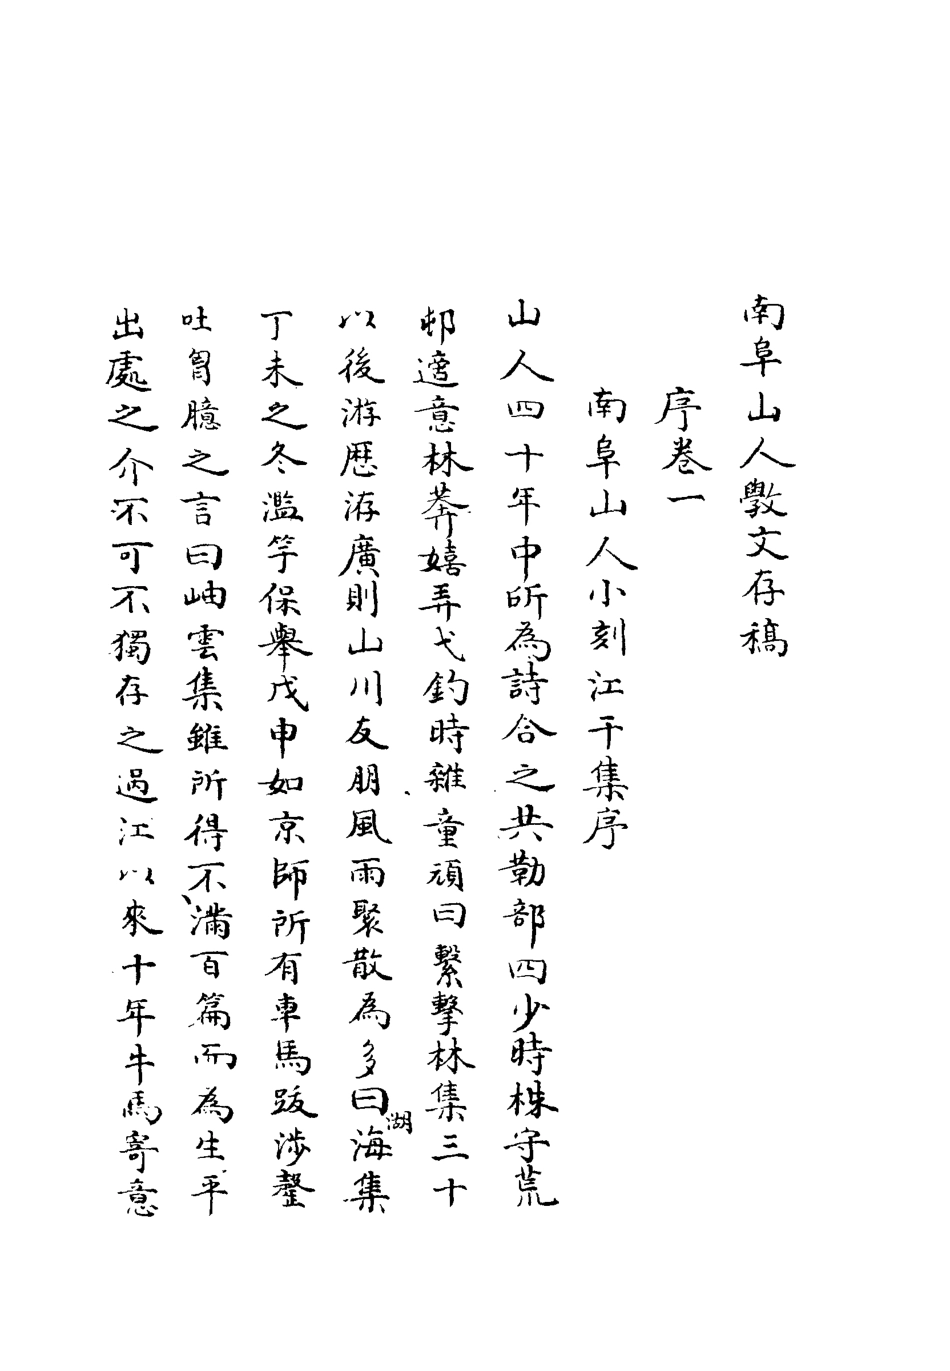 南阜山人斆文存稿
序卷一
南阜山人小刻江干集序
山人四十年中所為詩合之共勒部四少時株守荒
邨適意林莽嬉弄弋釣時雜童頑曰繫擊林集三十
以後游厯洊廣則山川友朋風雨聚散為多曰湖海集
丁未之冬濫竽保舉戊申如京師所有車馬跋涉罄
吐胷臆之言曰岫雲集雖所得不滿百篇而為生平
出處之介不可不獨存之過江以來十年牛馬寄意